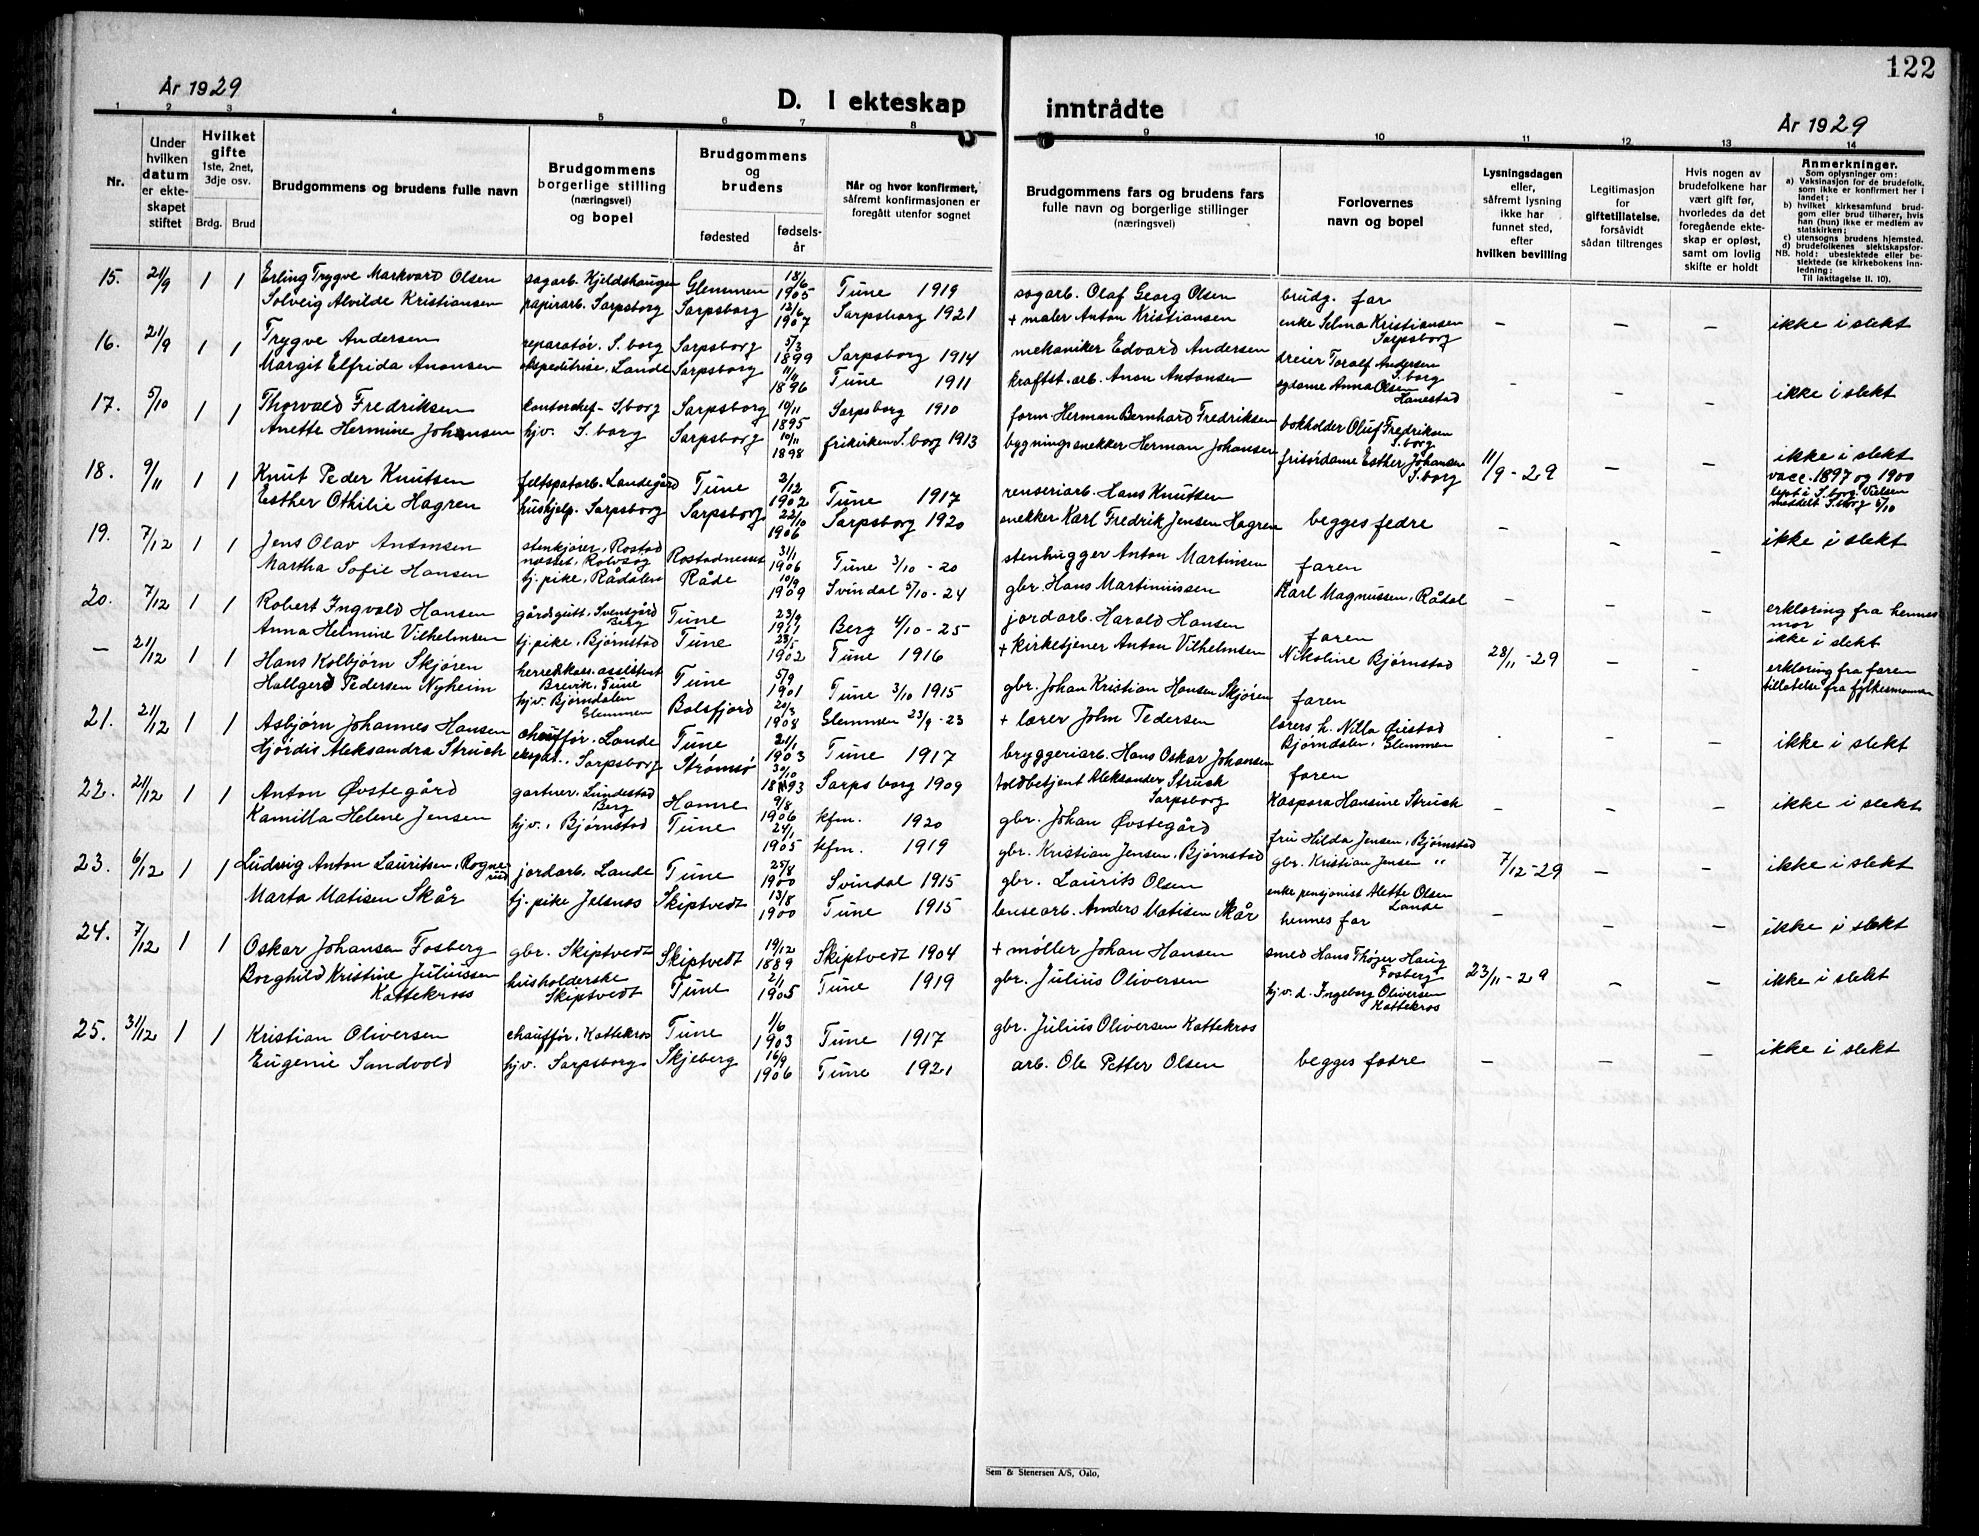 122
År 1929
D. I ekteskap inntrådte
År 1929
1 2 3 4 5 6 7 8 9 10 11 12 13 14
Nr.
Under hvilken datum er ekteskapet stiftet
Hvilket gifte 1ste, 2net, 3dje osv.
Brdg. Brud
Brudgommens og brudens fulle navn
Brudgommens borgerlige stilling (næringsvei) og bopel
Brudgommens og brudens
fødested
fødselsår
Når og hvor konfirmert, såfremt konfirmasjonen er foregått utenfor sognet
Brudgommens fars og brudens fars fulle navn og borgerlige stillinger (næringsvei)
Forlovernes navn og bopel
Lysningsdagen eller, såfremt lysning ikke har funnet sted, efter hvilken bevilling
Legitimasjon for giftetillatelse, forsåvidt sådan tiltrenges
Hvis nogen av brudefolkene har vært gift før, hvorledes da det foregående ekteskap er opløst, samt om lovlig skifte er holdt
Anmerkninger.
Som oplysninger om:
a) Vaksinasjon for de brudefolk, som ikke er konfirmert her i landet;
b) hvilket kirkesamfund brudgom eller brud tilhører, hvis han (hun) ikke er medlem av statskirken;
c) utensogns brudens hjemsted.
d) brudefolkenes slektskapsforhold: ubeslektede eller beslektede (se kirkebokens innledning:
NB.
Til Iakttagelse II. 10).
15. 21/9 1 1 Erling Trygve Markvard Olsen sagarb. Kjeldshaugen Glemmen 18/6 1905 Tune 1919 sagarb. Olaf Georg Olsen brudg. far
Solveig Alvilde Kristiansen papirarb. Sarpsborg Sarpsborg 12/6 1907 Sarpsborg 1921 + maler Anton Kristiansen enke Selma Kristiansen Sarpsborg – – – ikke i slekt
16. 21/9 1 1 Trygve Andersen reparatør. S.borg Sarpsborg 5/3 1899 Sarpsborg 1914 mekaniker Edvard Andersen dreier Toralf Andersen S.borg
Margit Elfrida Anonsen ekspeditrise, Lande Sarpsborg 11/11 1896 Tune 1911 kraftst. arb. Anon Antonsen Anna Olsen Hanestad – – – ikke i slekt
17. 5/10 1 1 Thorvald Fredriksen kontorchef - S.borg Sarpsborg 10/11 1895 Sarpsborg 1910 form. Herman Bernhard Fredriksen bokholder Oluf Fredriksen S.borg
Anette Hermine Johansen hjv. S.borg Sarpsborg 10/11 1898 frikirken S.borg 1913 bygningssnekker Herman Johansen frisørdame Esther Johansen S.borg 11/9-29 – – ikke i slekt
vacc. 1897 og 1900
18. 9/11 1 1 Knut Peder Knutsen feltspatarb. Landegård Tune 2/12 1902 Tune 1917 renseriarb. Hans Knutsen
Esther Othilie Hagren hushjelp. Sarpsborg Sarpsborg 22/10 1906 Sarpsborg 1920 snekker Karl Fredrik Jensen Hagren begges fedre – – – ikke i slekt
19. 7/12 1 1 Jens Olav Antonsen stenkjører, Rostadnesset, Rolvsøy Rostadnesset 31/1 1906 Tune 3/10-20 stenhugger Anton Martinsen faren
Martha Sofie Hansen tj. pike, Rådalen Råde 10/9 1909 Svindal 5/10-24 gbr. Hans Martiniussen Karl Magnussen, Rådal – – – erklæring fra hennes mor
ikke i slekt
20. 7/12 1 1 Robert Ingvald Hansen gårdsgutt, Svensgård Berg Tune 23/9 1911 Berg 4/10-25 jordarb. Harald Hansen faren
Anna Helmine Vilhelmsen tj. pike, Bjørnstad Tune 23/5 1902 Tune 1916 + kirketjener Anton Vilhelmsen Nikoline Bjørnstad 28/11-29 – – erklæring fra faren
tillatelse fra fylkesmannen
– 21/12 1 1 Hans Kolbjørn Skjøren herredskass. assistent Brevik, Tune Tune 5/9 1901 Tune 3/10 1915 gbr. Johan Kristian Hansen Skjøren faren
Hallgerd Pedersen Nyheim hjv. Bjørndalen Glemmen Balsfjord 20/3 1908 Glemmen 23/9-23 + lærer John Pedersen lærers h. Nilla Øiestad Bjørndalen, Glemmen – – – ikke i slekt
21. 21/12 1 1 Asbjørn Johannes Hansen chauffør. Lande Tune 21/1 1903 Tune 1917 bryggeriarb. Hans Oskar Johansen faren
Hjørdis Aleksandra Struck ekspd., Sarpsborg Strømsø 30/10 1893 Sarpsborg 1909 toldbetjent Aleksander Struck Sarpsborg Kaspara Hansine Struck – – – ikke i slekt
22. 21/12 1 1 Anton Øvstegård gartner. Lundestad Berg Hamre 9/8 1906 kfm. 1920 gbr. Johan Øvstegård fru Hilda Jensen, Bjørnstad
Kamilla Helene Jensen hjv., Bjørnstad Tune 24/1 1905 kfm. 1919 gbr. Kristian Jensen, Bjørnstad gbr. Kristian Jensen " 7/12-29 – – ikke i slekt
23. 6/12 1 1 Ludvig Anton Lauritsen, Rognerud jordarb. Lande Tune 25/8 1900 Svindal 1915 gbr. Laurits Olsen enke pensjonist Alette Olsen Lande
Marta Matisen Skår tj. pike Jelsnes Skiptvedt 13/8 1900 Tune 1915 lensearb. Anders Matisen Skår hennes far – – – ikke i slekt
24. 7/12 1 1 Oskar Johansen Fosberg gbr. Skiptvedt Skiptvedt 19/12 1889 Skiptvedt 1904 + møller Johan Hansen smed Hans Thøger Haug Fosberg
Borghild Kristine Juliussen Kattekross husholderske Skiptvedt Tune 2/1 1905 Tune 1919 gbr. Julius Oliversen hjv. d. Ingeborg Oliversen Kattekros 23/11-29 – – ikke i slekt
25. 31/12 1 1 Kristian Oliversen chauffør, Kattekros Tune 1/6 1903 Tune 1917 gbr. Julius Oliversen Kattekros
Eugenie Sandvold hjv. Sarpsborg Skjeberg 16/9 1906 Tune 1921 arb. Ole Petter Olsen begges fedre – – – ikke i slekt
Sem & Stenersen A/S, Oslo.